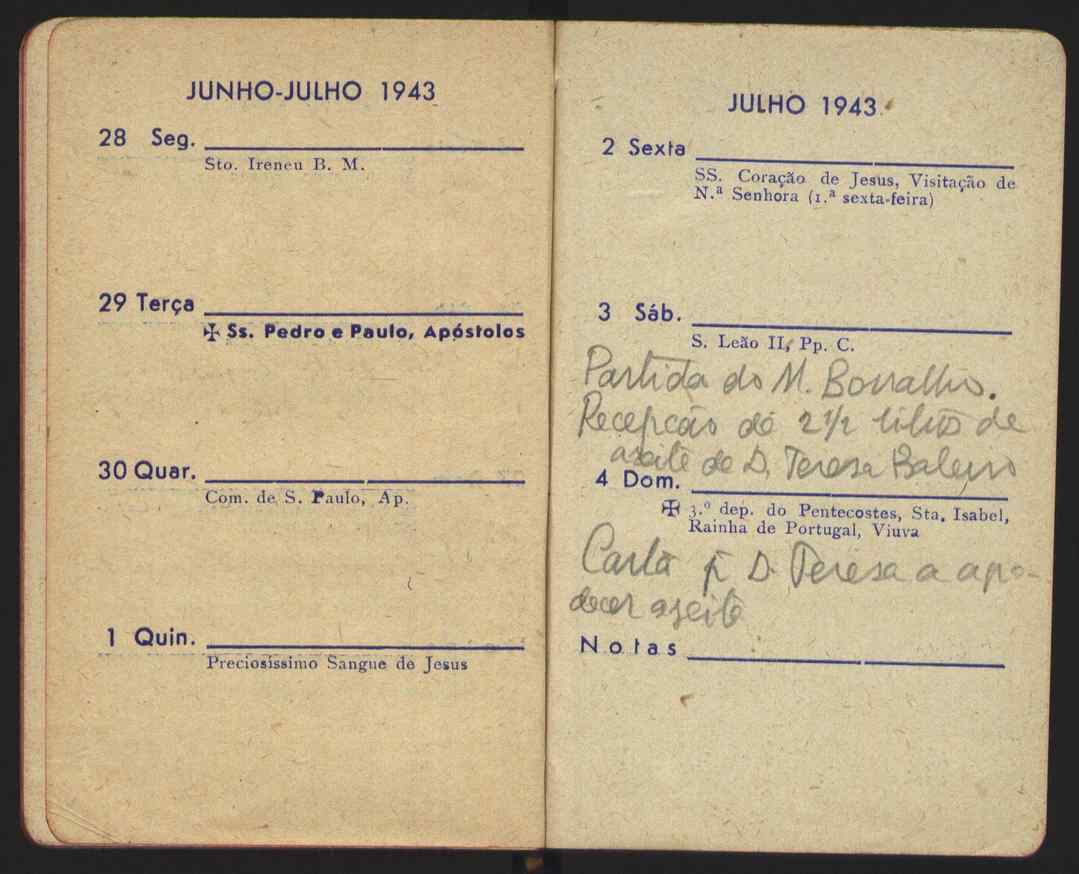 JUNHO-JULHO 1943
28 Seg.
Sto. Ireneu B. M.
29 Terça
✠ Ss. Pedro e Paulo, Apóstolos
30 Quar.
Com. de S. Paulo, Ap.
1 Quin.
Preciosíssimo Sangue de Jesus
JULHO 1943
2 Sexta
SS. Coração de Jesus, Visitação de
N.ª Senhora (1.ª sexta-feira)
3 Sáb.
S. Leão II, Pp. C.
Partida do M. Borralho.
Recepção de 2 1/2 litros de
azeite de D. Teresa
4 Dom.
✠ 3.º dep. do Pentecostes, Sta. Isabel,
Rainha de Portugal, Viuva
Carta p. D. Teresa a
azeite
Notas